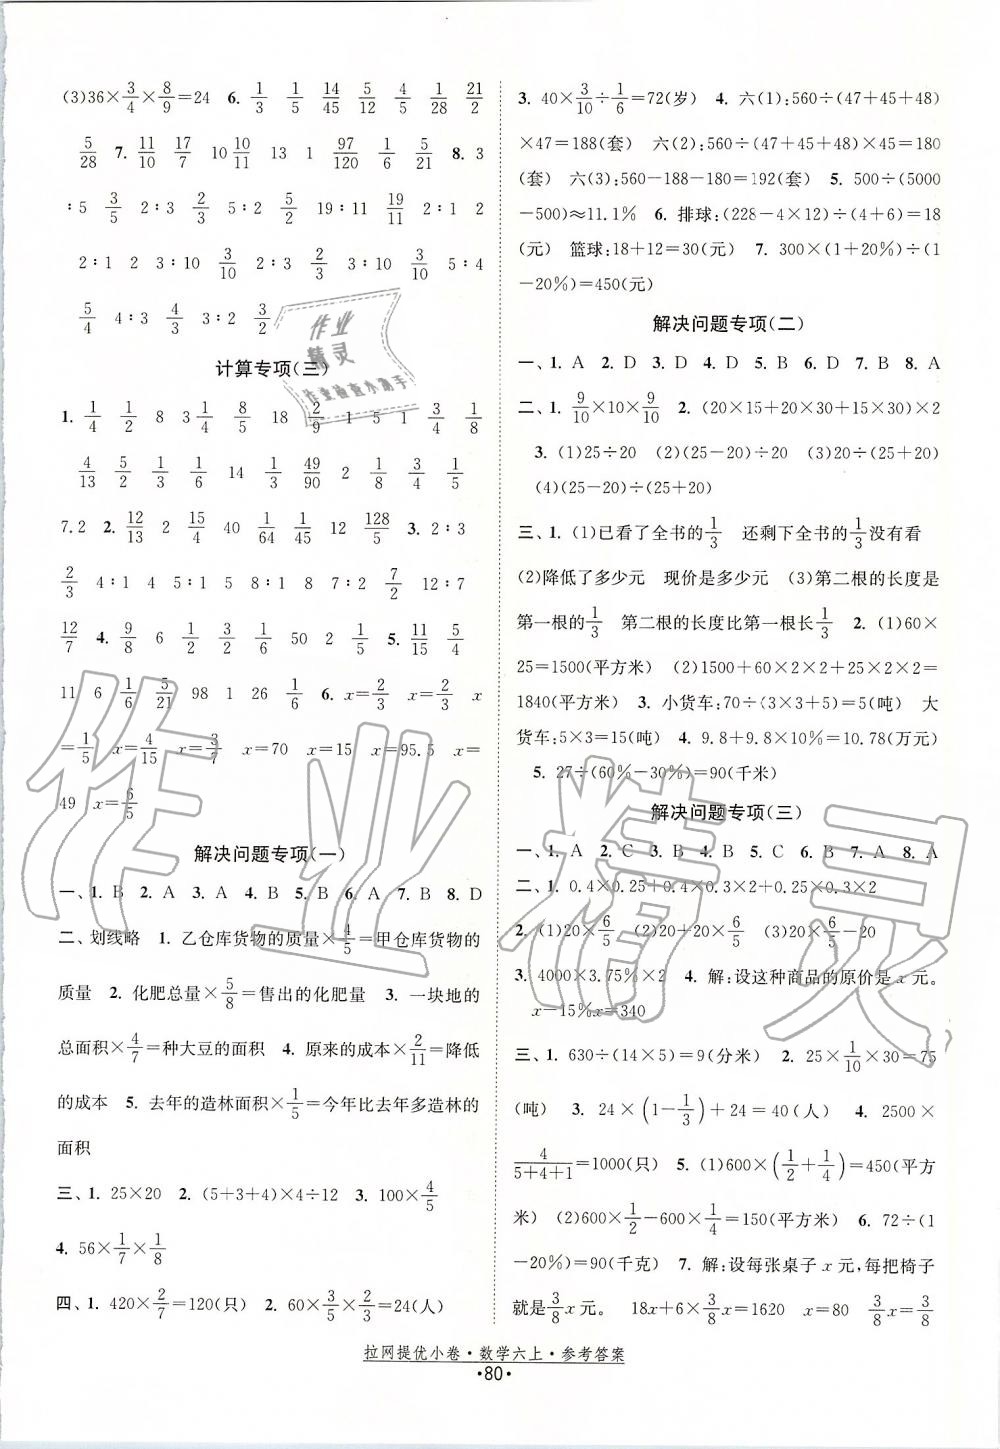 (3)36×3/4×8/9=24 6. 1/3 1/5 14/45 5/12 4/5 1/28 21/2
5/28 7. 11/10 17/7 10 10/11 13 1 97/120 1/6 5/21 8. 3
∶5 3/5 2∶3 2/3 5∶2 5/2 19∶11 19/11 2∶1 2
2∶1 2 3∶10 3/10 2∶3 2/3 3∶10 3/10 5∶4
5/4 4∶3 4/3 3∶2 3/2
计算专项(三)
1. 1/4 1/2 8 3 1/4 8/5 18 2/9 1 5 1 3/4 1/8
4/13 5/2 1/3 1/6 14 1/3 49/90 2 1/8 3/4 1/5
7.2 2. 12/13 2 15/4 40 1/64 1/45 12 128/5 3. 2∶3
2/3 4∶1 4 5∶1 5 8∶1 8 7∶2 7/2 12∶7
12/7 4. 9/8 6 1/2 3/2 1/6 50 2 1/5 5. 11/15 5/4
11 6 1/6 5/21 98 1 26 1/6 6. x=2/3 x=2/3 x
=1/5 x=4/15 x=3/7 x=70 x=15 x=95.5 x=
49 x=6/5
解决问题专项(一)
一、1. B 2. A 3. A 4. B 5. A 6. A 7. B 8. D
二、划线略 1. 乙仓库货物的质量×4/5=甲仓库货物的
质量 2. 化肥总量×5/8=售出的化肥量 3. 一块地的
总面积×4/7=种大豆的面积 4. 原来的成本×2/11=降低
的成本 5. 去年的造林面积×1/5=今年比去年多造林的
面积
三、1. 25×20 2. (5+3+4)×4÷12 3. 100×4/5
4. 56×1/7×1/8
四、1. 420×2/7=120(只) 2. 60×3/5×2/3=24(人)
3. 40×3/10÷1/6=72(岁) 4. 六(1):560÷(47+45+48)
×47=188(套) 六(2):560÷(47+45+48)×45=180
(套) 六(3):560-188-180=192(套) 5. 500÷(5000
-500)≈11.1% 6. 排球:(228-4×12)÷(4+6)=18
(元) 篮球:18+12=30(元) 7. 300×(1+20%)÷(1
-20%)=450(元)
解决问题专项(二)
一、1. A 2. D 3. D 4. D 5. B 6. D 7. B 8. A
二、1. 9/10×10×9/10 2. (20×15+20×30+15×30)×2
3. (1)25÷20 (2)(25-20)÷20 (3)20÷(25+20)
(4)(25-20)÷(25+20)
三、1. (1)已看了全书的1/3 还剩下全书的1/3没有看
(2)降低了多少元 现价是多少元 (3)第二根的长度是
第一根的1/3 第二根的长度比第一根长1/3 2. (1)60×
25=1500(平方米) (2)1500+60×2×2+25×2×2=
1840(平方米) 3. 小货车:70÷(3×3+5)=5(吨) 大
货车:5×3=15(吨) 4. 9.8+9.8×10%=10.78(万元)
5. 27÷(60%-30%)=90(千米)
解决问题专项(三)
一、1. A 2. C 3. B 4. B 5. A 6. B 7. B 8. A
二、1. 0.4×0.25+0.4×0.3×2+0.25×0.3×2
2. (1)20×6/5 (2)20+20×6/5 (3)20×6/5-20
3. 4000×3.75%×2 4. 解:设这种商品的原价是x元。
x-15%x=340
三、1. 630÷(14×5)=9(分米) 2. 25×1/10×30=75
(吨) 3. 24×(1-1/3)+24=40(人) 4. 2500×
4/5+4+1=1000(只) 5. (1)600×(1/2+1/4)=450(平方
米) (2)600×1/2-600×1/4=150(平方米) 6. 72÷(1
-20%)=90(千克) 7. 解:设每张桌子x元,每把椅子
就是3/8x元。 18x+6×3/8x=1620 x=80 3/8x=3/8
拉网提优小卷·数学六上·参考答案
·80·
作业
精灵
作业检查小助手
作业精灵